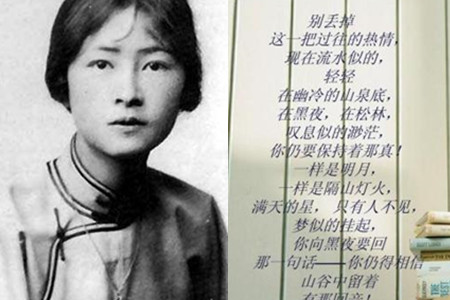 别丢掉
这一把过往的热情，
现在流水似的，
轻轻
在幽冷的山泉底，
在黑夜，在松林，
叹息似的渺茫，
你仍要保持着那真！
一样是明月，
一样是隔山灯火，
满天的星，只有人不见，
梦似的挂起，
你向黑夜要回
那一句话——你仍得相信
山谷中留着
有那回音！